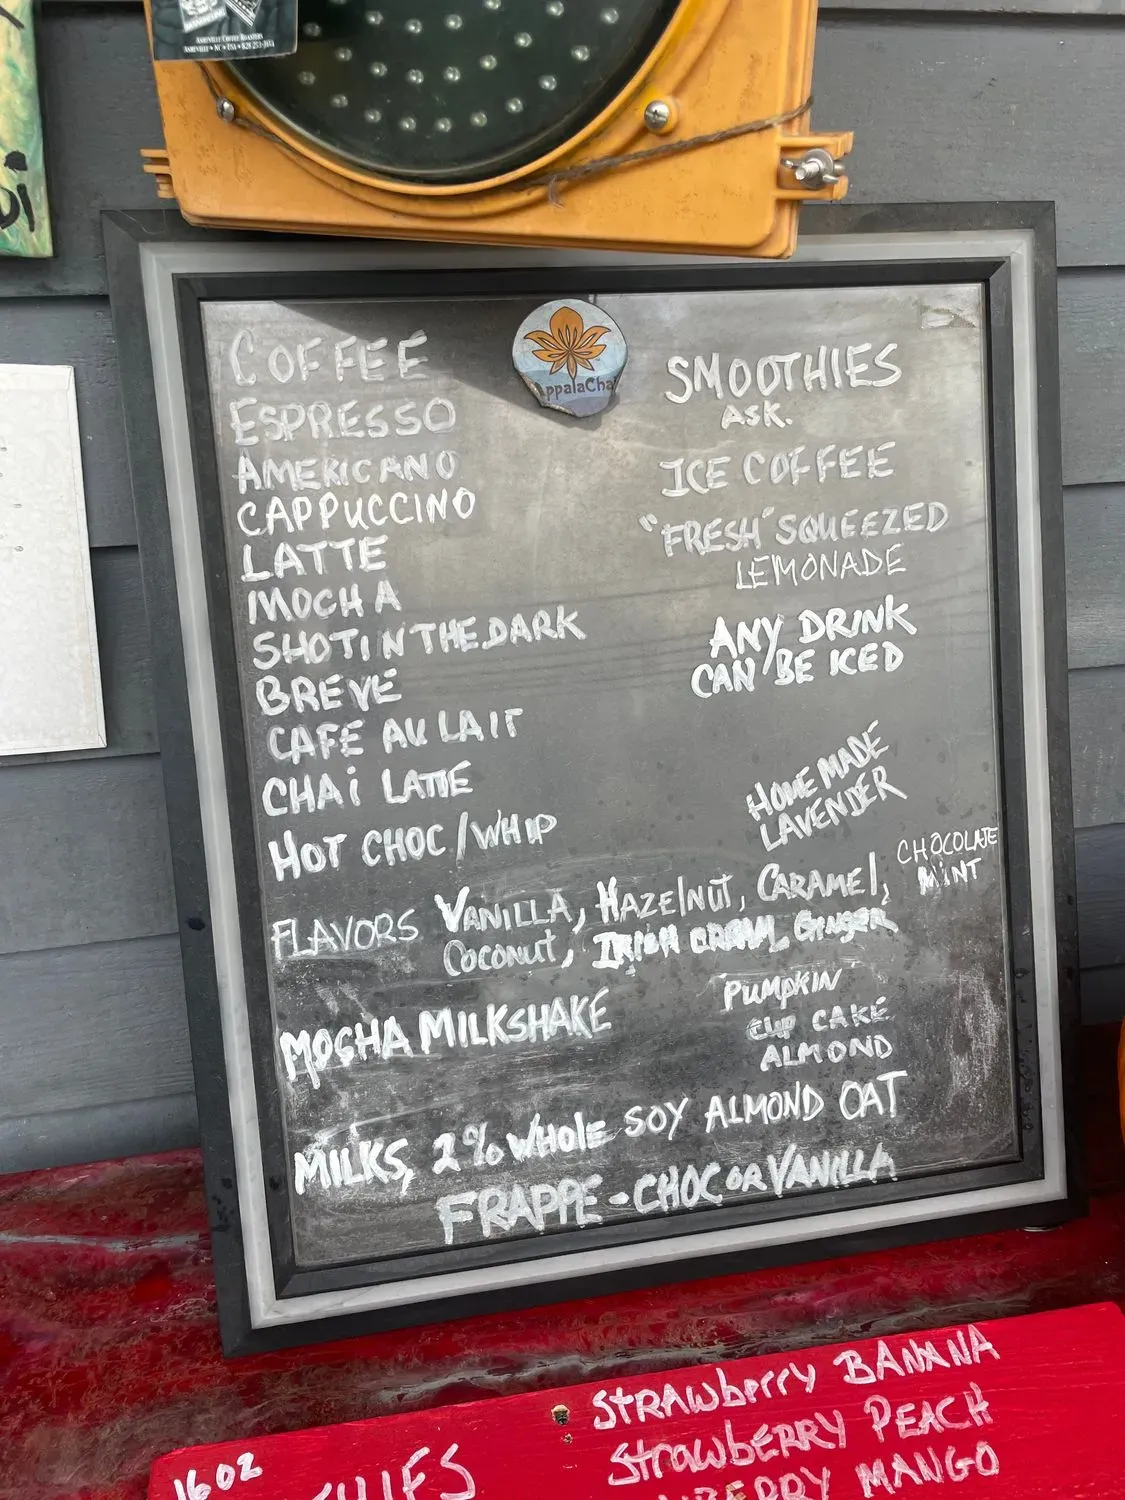 ASHEVILLE COFFEE ROASTERS
ASHEVILLE • NC • USA • 828-253-
COFFEE
ESPRESSO
AMERICANO
CAPPUCCINO
LATTE
MOCHA
SHOT IN THE DARK
BREVE
CAFE AU LAIT
CHAi LATTE
HOT CHOC/WHIP
ppalaCha
SMOOTHIES
ASK.
ICE COFFEE
"FRESH" SQUEEZED
LEMONADE
ANY DRINK
CAN BE ICED
HOME MADE
LAVENDER
CHOCOLATE
MINT
FLAVORS VANILLA, HAZElNUT, CARAMEl,
COCONUT, IRISH CREAM, GINGER
PUMPKIN
CUP CAKE
ALMOND
MOCHA MILKSHAKE
MILKS, 2% WHOlE SOY ALMOND OAT
FRAPPE - CHOC OR VANILLA
STRAWberrY BANANA
STrawbERRY PEACH
BERRY MANGO
16 OZ